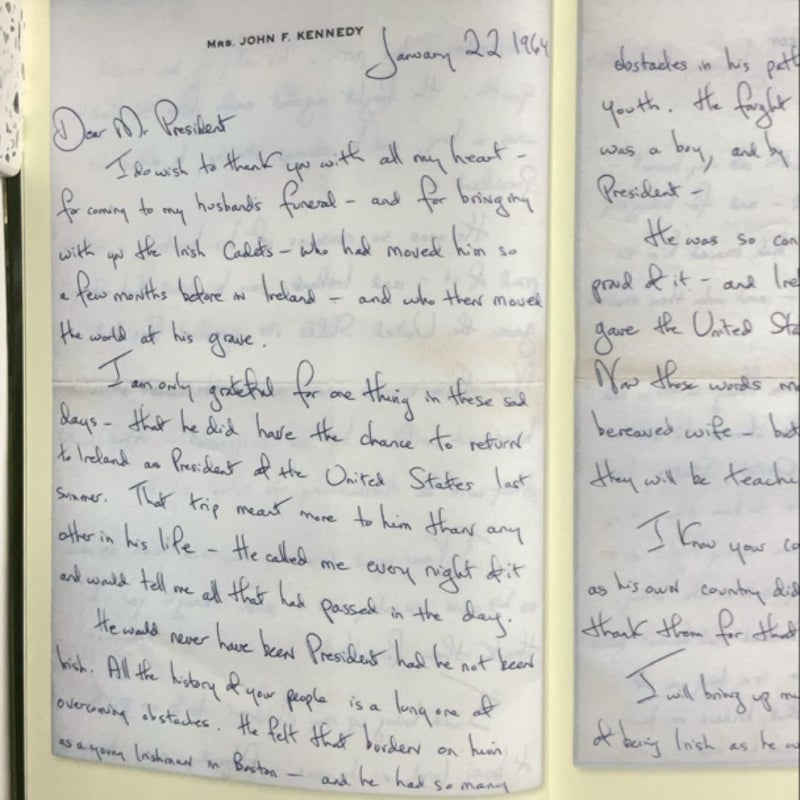 MRS. JOHN F. KENNEDY
January 22 1964
Dear Mr. President
I do wish to thank you with all my heart -
for coming to my husband's funeral - and for bringing
with you the Irish Cadets - who had moved him so
a few months before in Ireland - and who then moved
the world at his grave.
I am only grateful for one thing in these sad
days - that he did have the chance to return
to Ireland as President of the United States last
summer. That trip meant more to him than any
other in his life - He called me every night of it
and would tell me all that had passed in the day.
He would never have been President had he not been
Irish. All the history of your people is a long one of
overcoming obstacles. He felt that burden on him
as a young Irishman in Boston - and he had so many
obstacles in his path
youth. He fought
was a boy, and by
President -
He was so con
proud of it - and Irel
gave the United Sta
Now those words me
bereaved wife - but
they will be teachi
I know your co
as his own country did
thank them for that
I will bring up m
of being Irish as he w